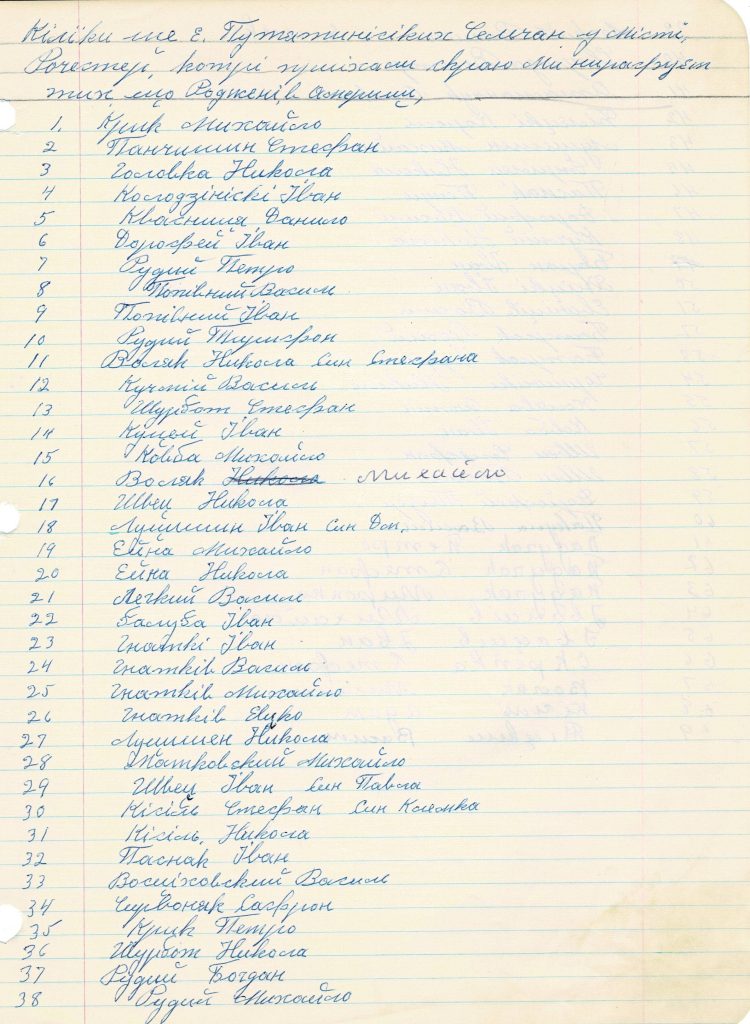 Кілїки ще є. Путятинісіких Селчан у місті,
Рочестер, котрі приїхали скраю Ми нирахрует
тих, що Роджені, в Америци,
1. Крик Михайло
2 Панчишин Стефан
3 Головка Никола
4 Колодзініскі Іван
5 Квасниля Данило
6 Дорофей Іван
7 Рудий Петро
8 Попівний Васил
9 Попівний Іван
10 Рудий Тимфрон
11 Воляк Никола Син Стефана
12 Кучмій Василь
13 Шурбот Стефан
14 Купей Іван
15 Ковба Михойло
16 Воляк Никола Михайло
17 Швец Никола
18 Луцишин Іван Син Дм,
19 Ейна Михайло
20 Ейна Никола
21 Легкий Василь
22 Балуба Іван
23 Гнаткі Іван
24 Гнатків Василь
25 Гнатків Михайло
26 Гнатків Ецко
27 Луцишен Никола
28 Жатковский Михайло
29 Швец Іван Син Павла
30 Кісіль Стефан Син Клемка
31 Кісіль, Никола
32 Паснак Іван
33 Восіховский Васил
34 Червоняк Сафрон
35 Крик Петро
36 Шурбот Никола
37 Рудий Богдан
38 Рудий Михайло